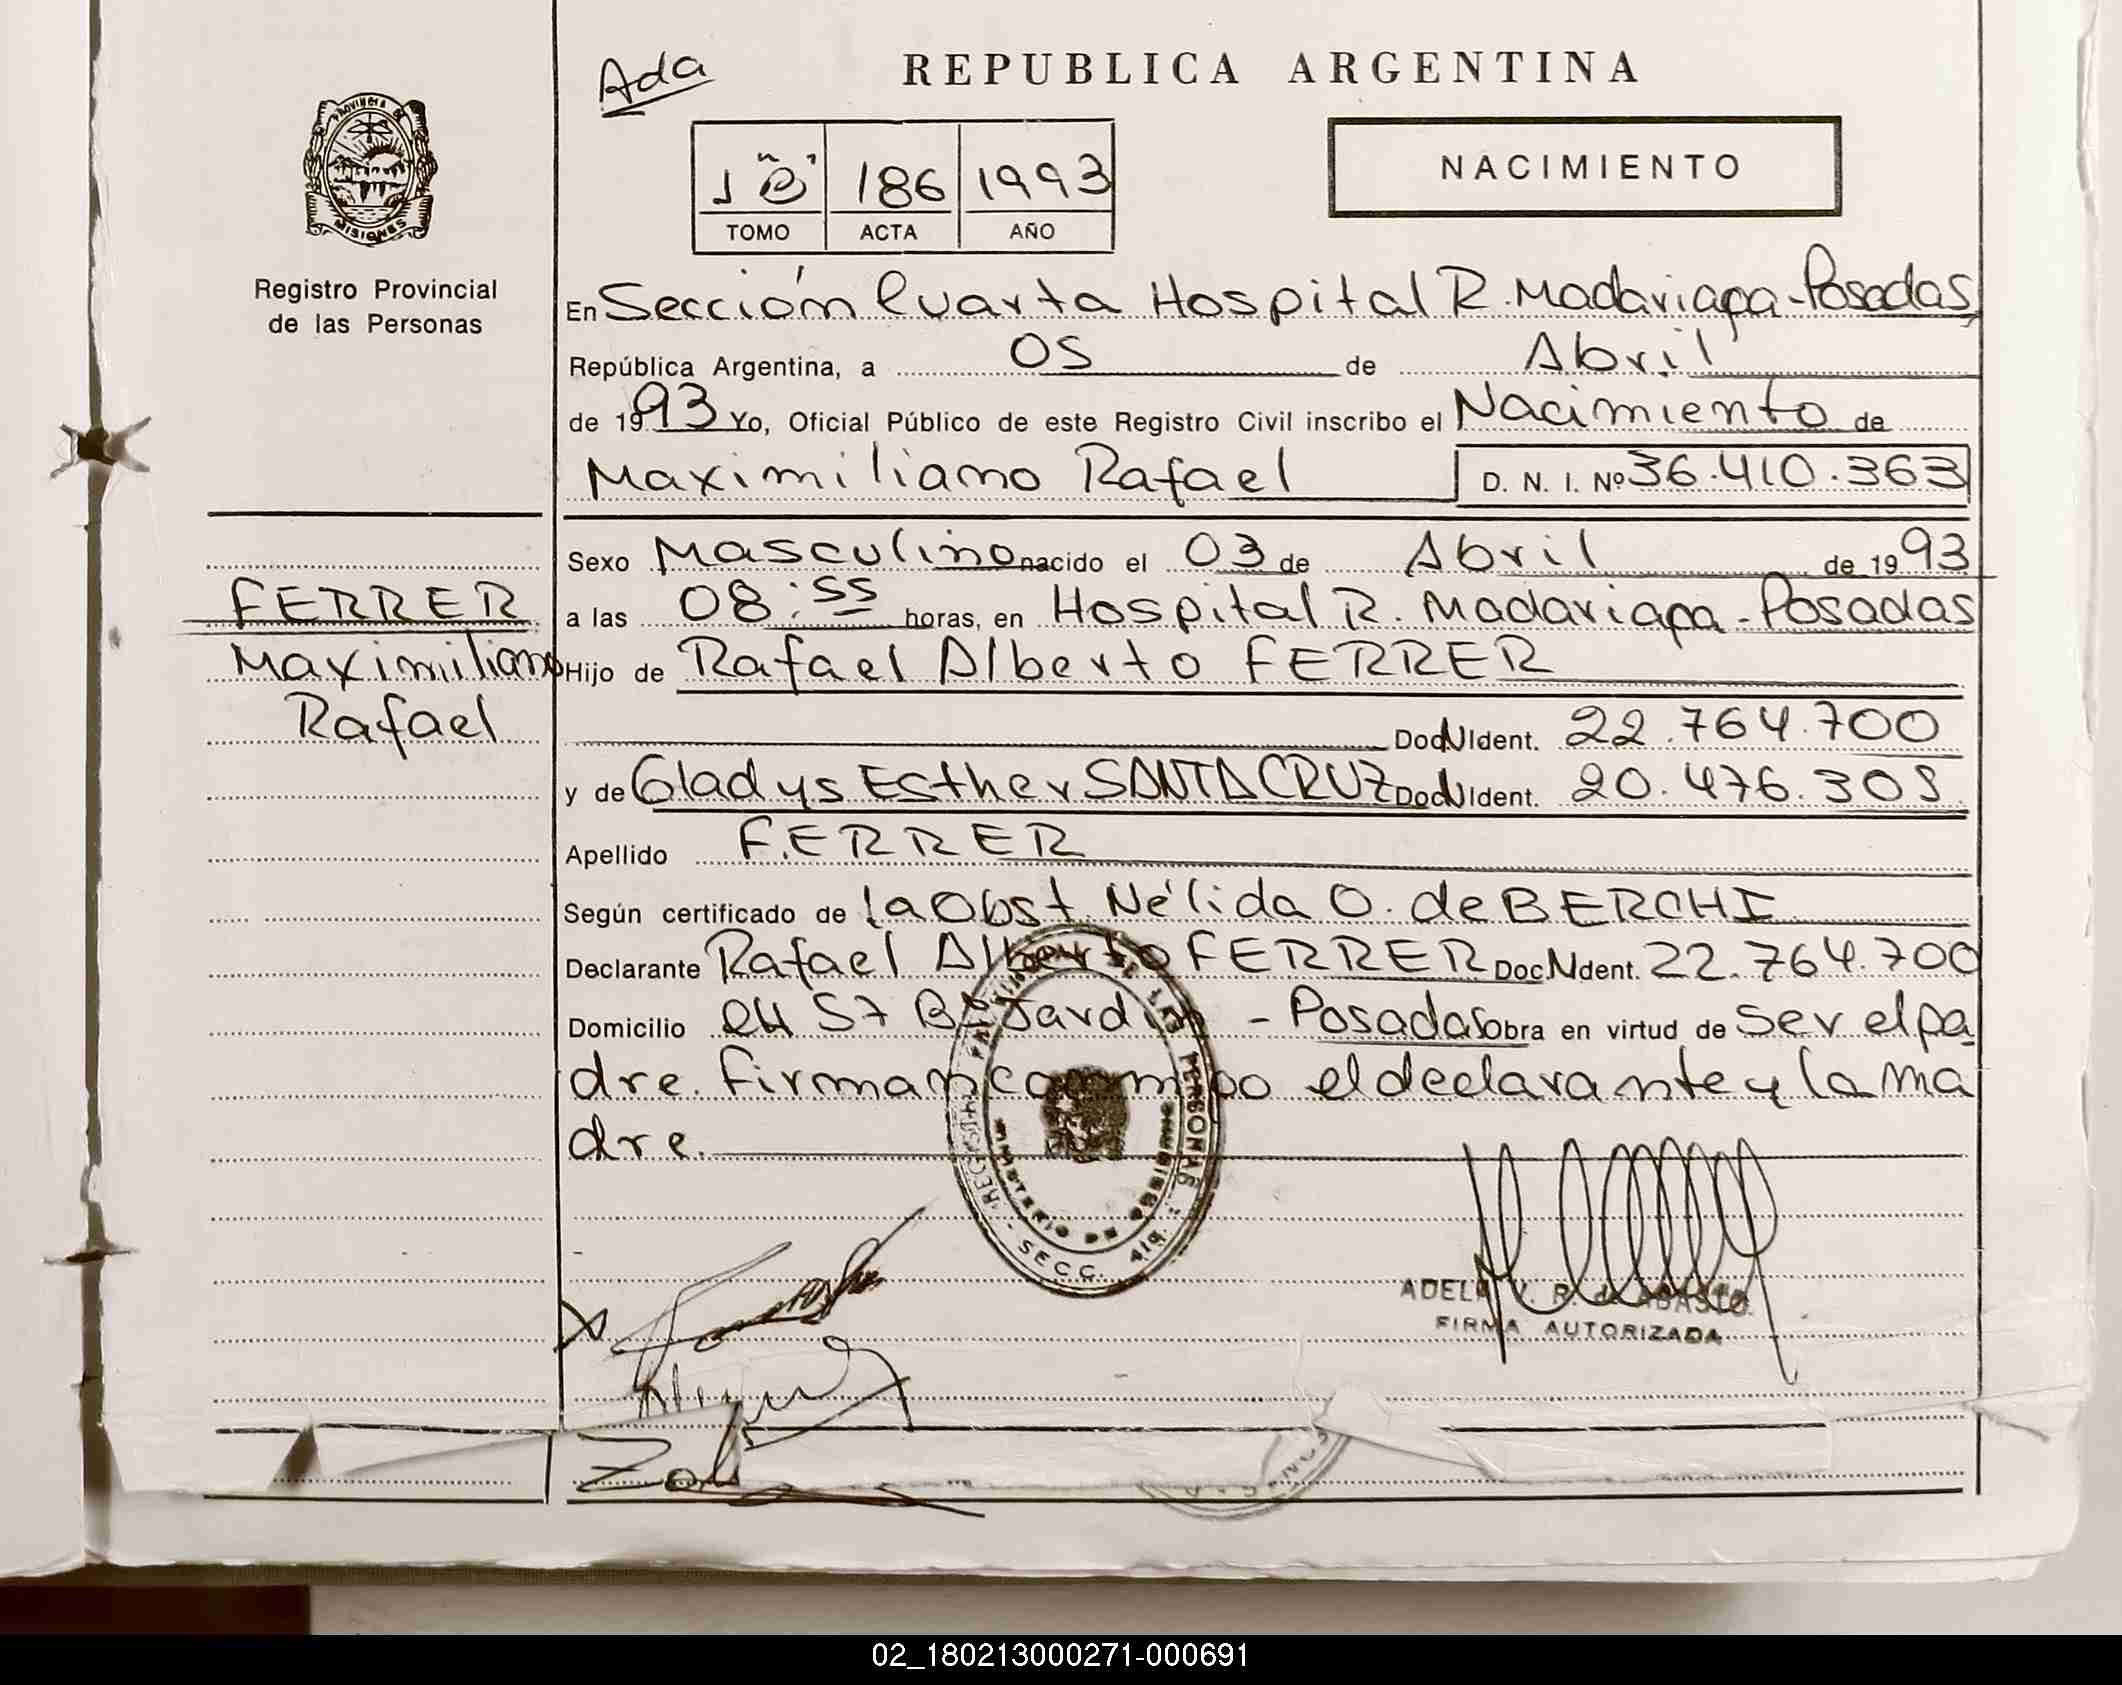 Ada
REPUBLICA ARGENTINA
PROVINCIA DE
MISIONES
186 1993
TOMO ACTA AÑO
NACIMIENTO
Registro Provincial
de las Personas
En Sección Cuarta Hospital R. Madariaga - Posadas,
República Argentina, a 05 de Abril
de 1993 Yo, Oficial Público de este Registro Civil inscribo el Nacimiento de
Maximiliano Rafael D. N. I. Nº 36.410.363
Sexo Masculino nacido el 03 de Abril de 1993
a las 08:55 horas, en Hospital R. Madariaga - Posadas
Hijo de Rafael Alberto FERRER
Doc N Ident. 22.764.700
y de Gladys Esther SANTACRUZ Doc N Ident. 20.476.305
Apellido FERRER
Según certificado de la Obst. Nélida O. de BERCHI
Declarante Rafael Alberto FERRER Doc. N Ident. 22.764.700
Domicilio CH 57 Bº Jardín - Posadas obra en virtud de ser el pa
dre. Firman conmigo el declarante y la ma
dre.
FERRER
Maximiliano
Rafael
REGISTRO PROVINCIAL DE LAS PERSONAS
MINISTERIO DE GOBIERNO
SECC. 4ta.
ADELA V. R. de ABASTO.
FIRMA AUTORIZADA
02_180213000271-000691